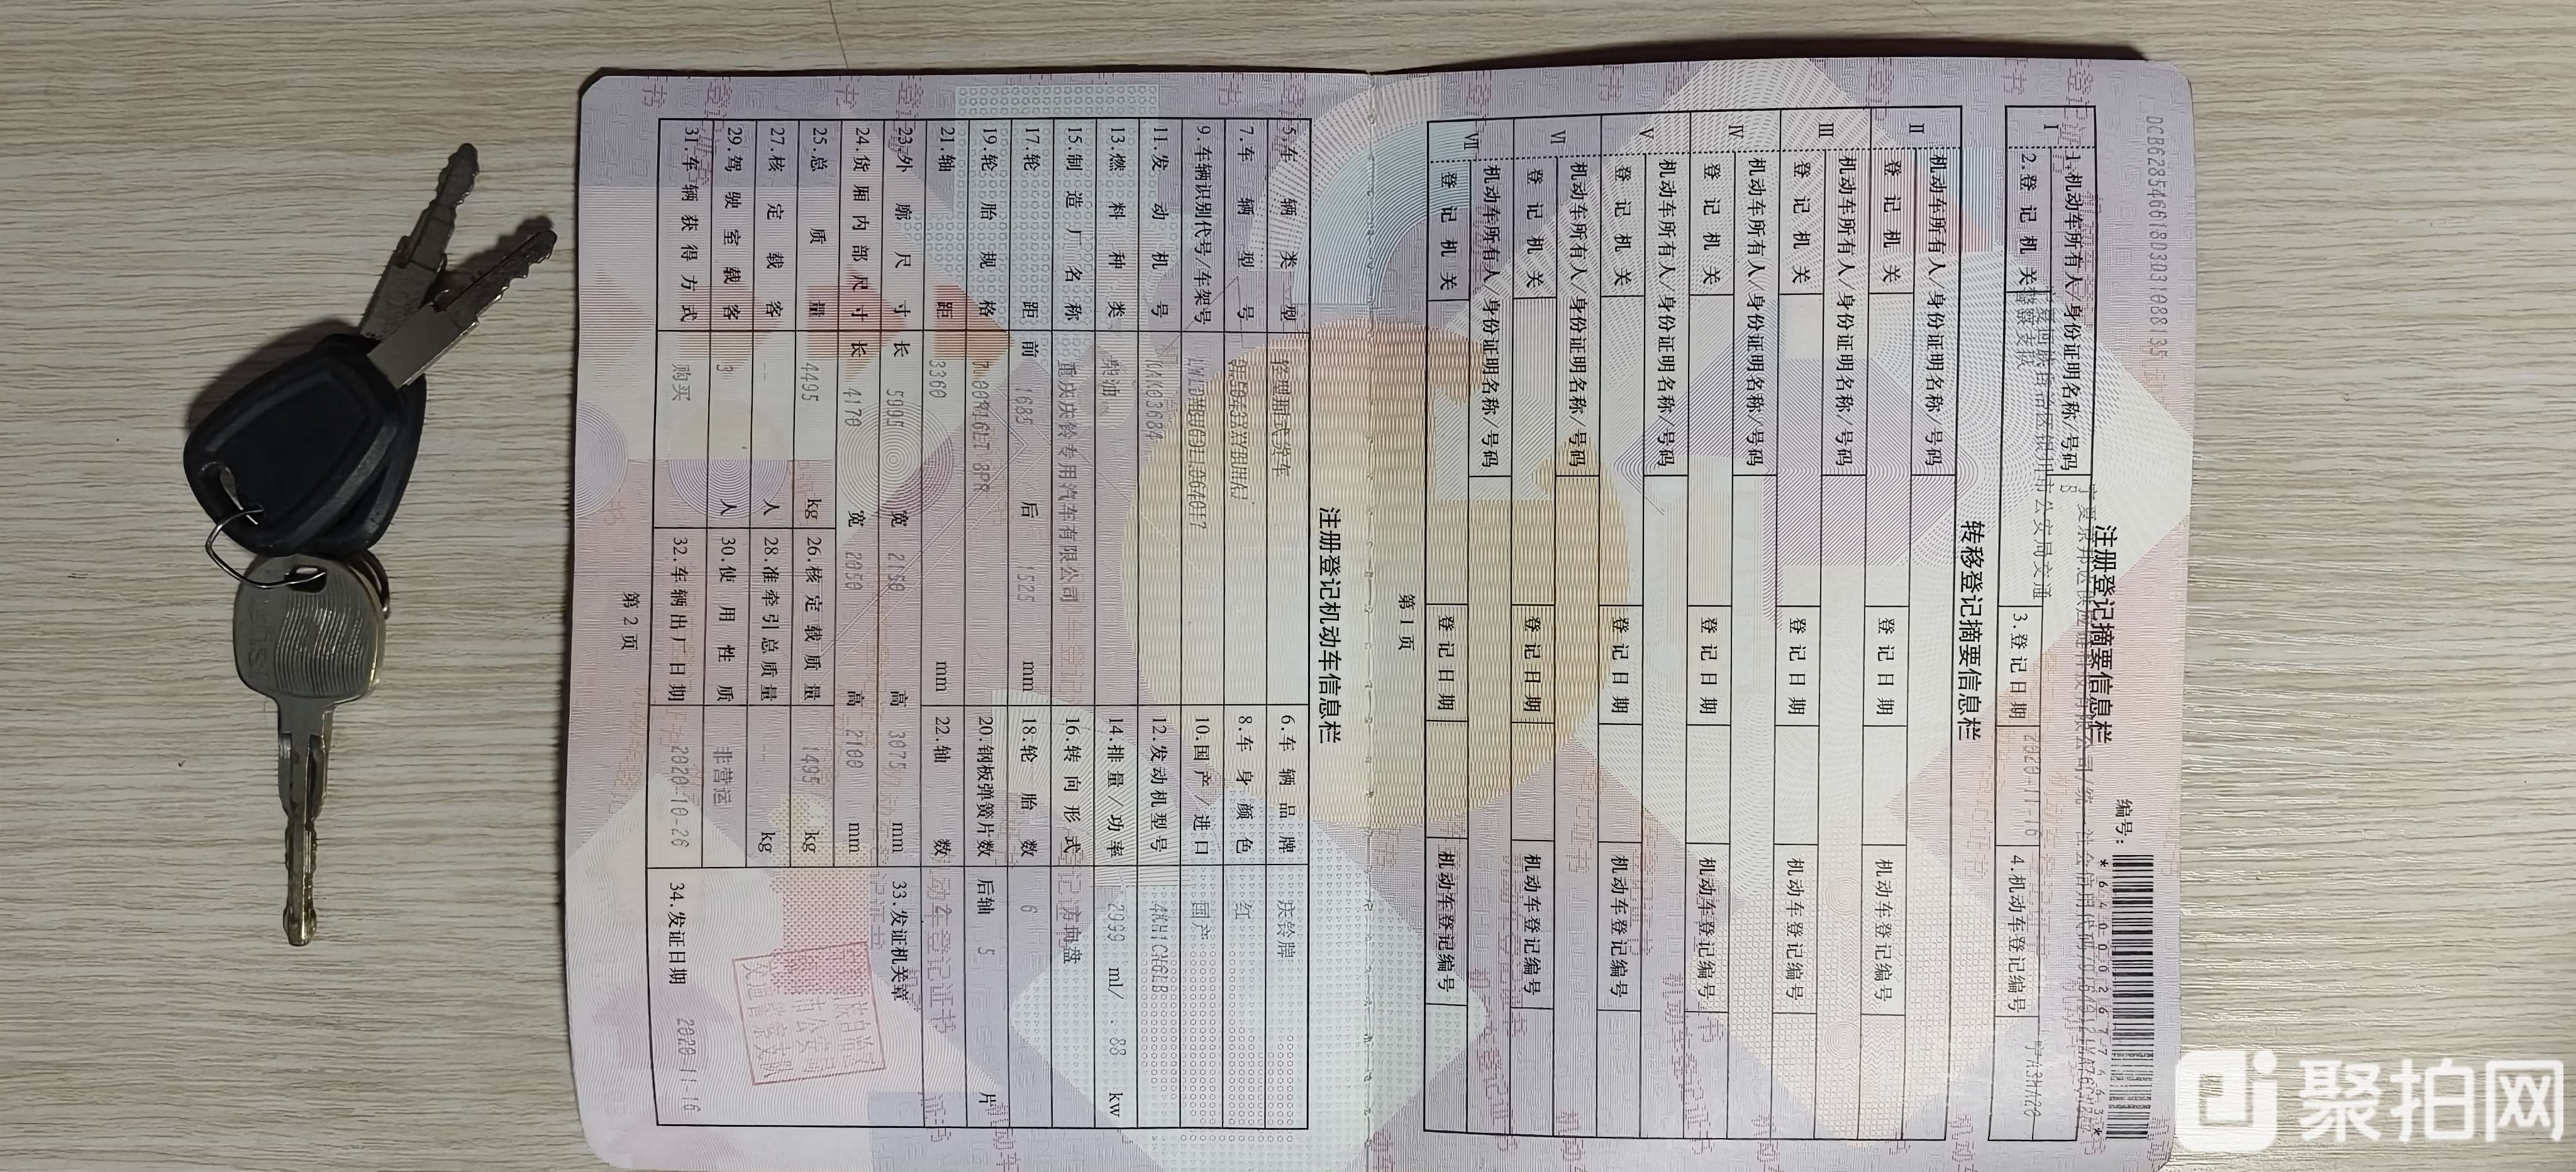 DCB62854661803031088135
编号：
注册登记摘要信息栏
Ⅰ 1.机动车所有人/身份证明名称/号码
2.登记机关 警察支队 3.登记日期 2020-11-16 4.机动车登记编号
转移登记摘要信息栏
Ⅱ 机动车所有人/身份证明名称/号码
登记机关 登记日期 机动车登记编号
Ⅲ 机动车所有人/身份证明名称/号码
登记机关 登记日期 机动车登记编号
Ⅳ 机动车所有人/身份证明名称/号码
登记机关 登记日期 机动车登记编号
Ⅴ 机动车所有人/身份证明名称/号码
登记机关 登记日期 机动车登记编号
Ⅵ 机动车所有人/身份证明名称/号码
登记机关 登记日期 机动车登记编号
Ⅶ 机动车所有人/身份证明名称/号码
登记机关 登记日期 机动车登记编号
第1页
注册登记机动车信息栏
5.车辆类型 轻型厢式货车 6.车辆品牌 庆铃牌
7.车辆型号 8.车身颜色 红
9.车辆识别代号/车架号 10.国产/进口 国产
11.发动机号 12.发动机型号
13.燃料种类 柴油 14.排量/功率 2999 ml/ 88 kw
15.制造厂名称 重庆庆铃专用汽车有限公司 16.转向形式 方向盘
17.轮距 前 1685 后 1525 mm 18.轮胎数 6
19.轮胎规格 7.00R16LT 8PR 20.钢板弹簧片数 后轴 5 片
21.轴距 3360 mm 22.轴数 2
23.外廓尺寸 长 5995 宽 2150 高 3075 mm 33.发证机关章
24.货厢内部尺寸 长 4170 宽 2050 高 2100 mm
25.总质量 4495 kg 26.核定载质量 1495 kg
27.核定载客 -- 人 28.准牵引总质量 -- kg
29.驾驶室载客 3 人 30.使用性质 非营运
31.车辆获得方式 购买 32.车辆出厂日期 2020-10-26 34.发证日期 2020-11-16
第2页
聚拍网